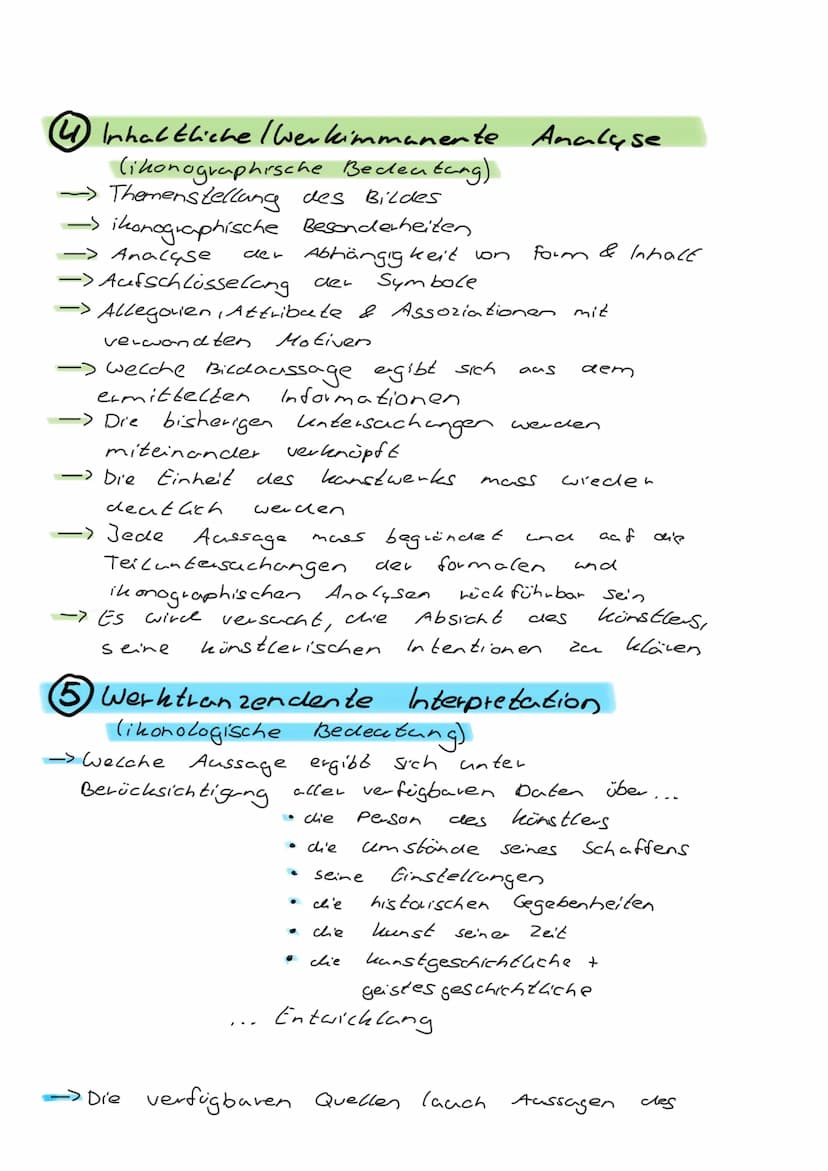 ④ Inhaltliche/Werkimmanente Analyse
(ikonographische Bedeutung)
→ Themenstellung des Bildes
→ ikonographische Besonderheiten
→ Analyse der Abhängigkeit von Form & Inhalt
→ Aufschlüsselung der Symbole
→ Allegorien, Attribute & Assoziationen mit
verwandten Motiven
→ Welche Bildaussage ergibt sich aus dem
ermittelten Informationen
→ Die bisherigen Untersuchungen werden
miteinander verknüpft
→ Die Einheit des Kunstwerks muss wieder
deutlich werden
→ Jede Aussage muss begründet und auf die
Teiluntersuchungen der formalen und
ikonographischen Analysen rückführbar sein
→ Es wird versucht, die Absicht des Künstlers,
seine künstlerischen Intentionen zu klären
⑤ Werktranzendente Interpretation
(ikonologische Bedeutung)
→ Welche Aussage ergibt sich unter
Berücksichtigung aller verfügbaren Daten über...
• die Person des Künstlers
• die Umstände seines Schaffens
• seine Einstellungen
• die historischen Gegebenheiten
• die Kunst seiner Zeit
• die kunstgeschichtliche +
geistesgeschichtliche
... Entwicklung
→ Die verfügbaren Quellen (auch Aussagen des